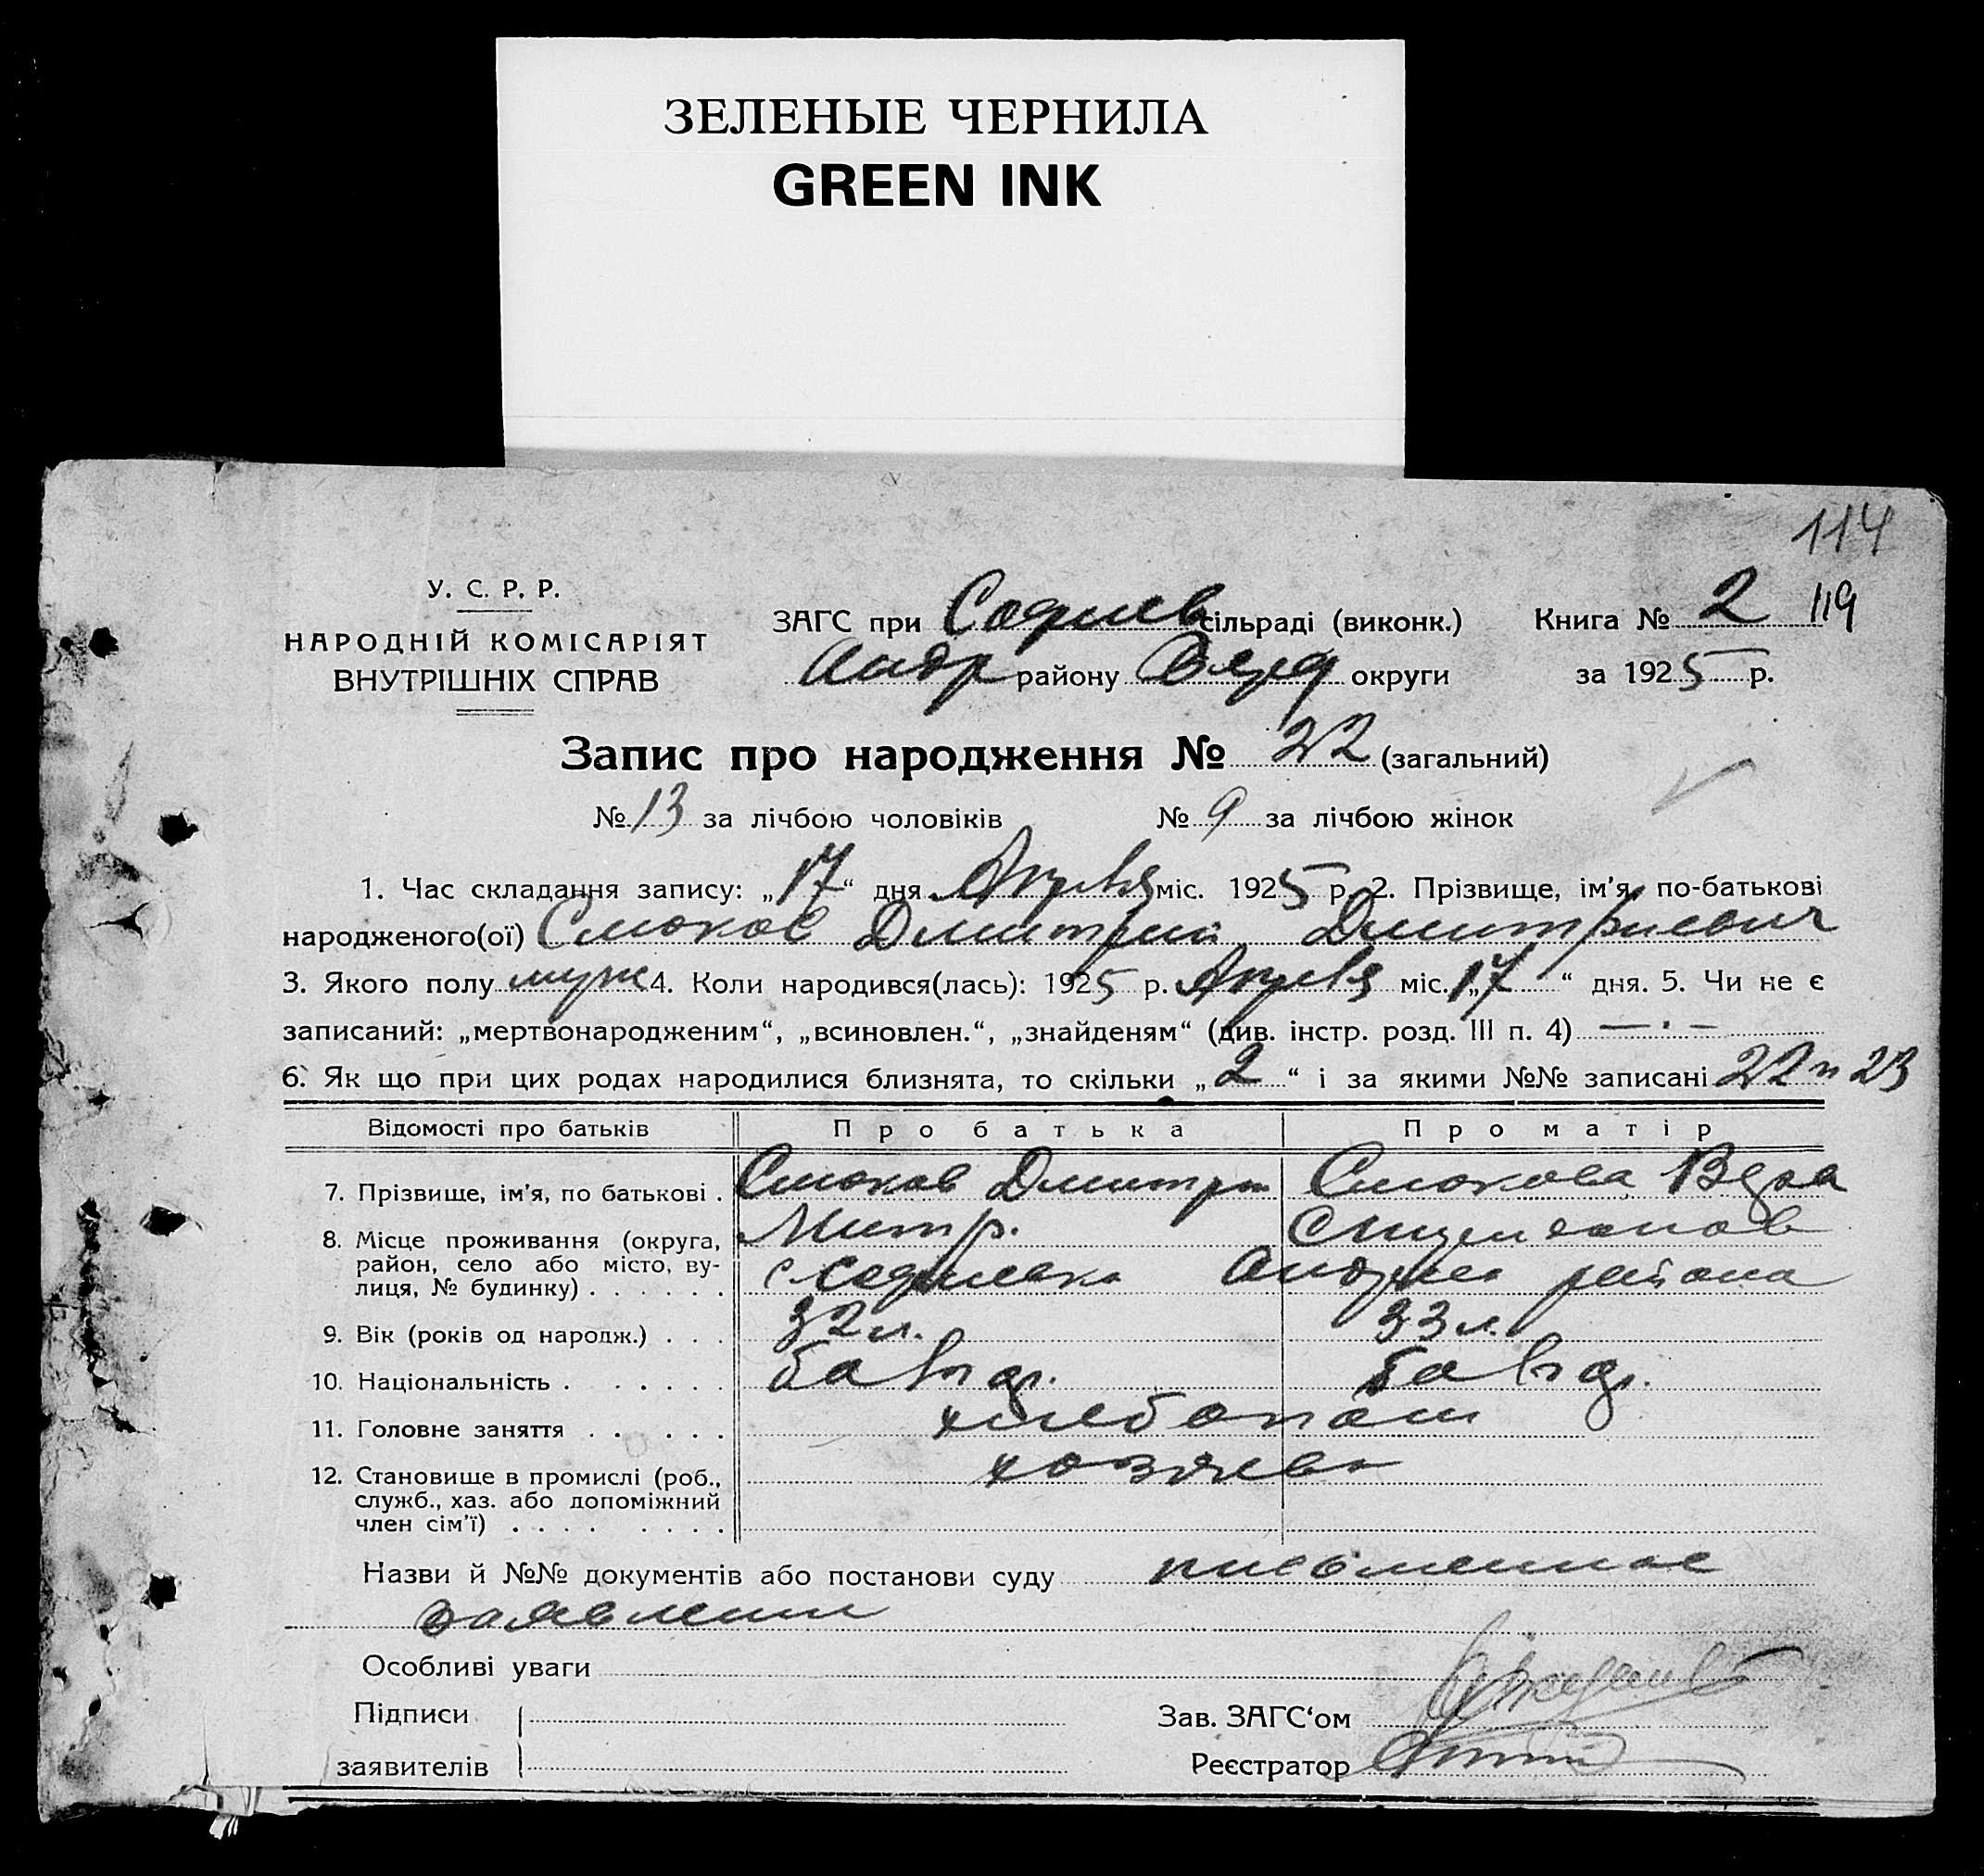 ЗЕЛЕНЫЕ ЧЕРНИЛА
GREEN INK
114
У. С. Р. Р.
НАРОДНІЙ КОМІСАРІЯТ
ВНУТРІШНІХ СПРАВ
ЗАГС при Софиев сільраді (виконк.) Книга № 2 119
Андр району округи за 1925 р.
Запис про народження № 22 (загальний)
№ 13 за лічбою чоловіків № 9 за лічбою жінок
1. Час складання запису: „17“ дня Апреля міс. 1925 р. 2. Прізвище, ім'я, по-батькові
народженого(ої) Смоков Дмитрий Дмитриевич
3. Якого полу муж 4. Коли народився(лась): 1925 р. Апреля міс. „17“ дня. 5. Чи не є
записаний: „мертвонародженим“, „всиновлен.“, „знайденям“ (див. інстр. розд. III п. 4) — . —
6. Як що при цих родах народилися близнята, то скільки „2“ і за якими №№ записані 22 и 23
Відомості про батьків Про батька Про матір
7. Прізвище, ім'я, по батькові . Смоков Дмитри Смокова Вера
Митр.
8. Місце проживання (округа,
район, село або місто, ву-
лиця, № будинку) . . . . . . с Софиевка района
9. Вік (років од народж.) . . . 32 л. 33 л.
10. Національність . . . . . .
11. Головне заняття . . . . . хлебопаш
12. Становище в промислі (роб.,
служб., хаз. або допоміжний
член сім'ї) . . . . . . . . хозяева
Назви й №№ документів або постанови суду письменное
заявлении
Особливі уваги
Підписи Зав. ЗАГС‘ом
заявителів Реєстратор